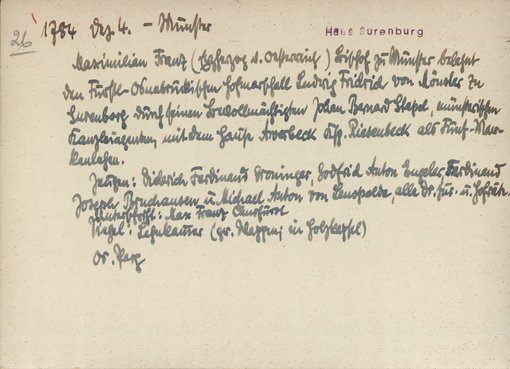 26
1784 Dez. 4. - Münster
Haus Surenburg
Maximilian Franz (Erzherzog v. Oesterreich) Bischof zu Münster belehnt
den Fürstl-Osnabrückischen Hofmarschall Ludwig Fridrich von Mönster zu
Surenborg durch seinen Bevollmächtigten Johan Bernard Stapel, münsterischen
Kanzleiagenten mit dem Hause Averbeck Ksp. Riesenbeck als Fünf-Mar-
kenlehen.
Zeugen: Diderich Ferdinand Droninger, Godfrid Anton Engelen, Ferdinand
Joseph Bruchausen u. Michael Anton von Lenspolde, alle Dr. jur. u. Hofräte.
Unterschrift: Max Franz Churfürst
Siegel: Lehnkamer (gr. Wappen in Holzkapsel)
Or. Perg